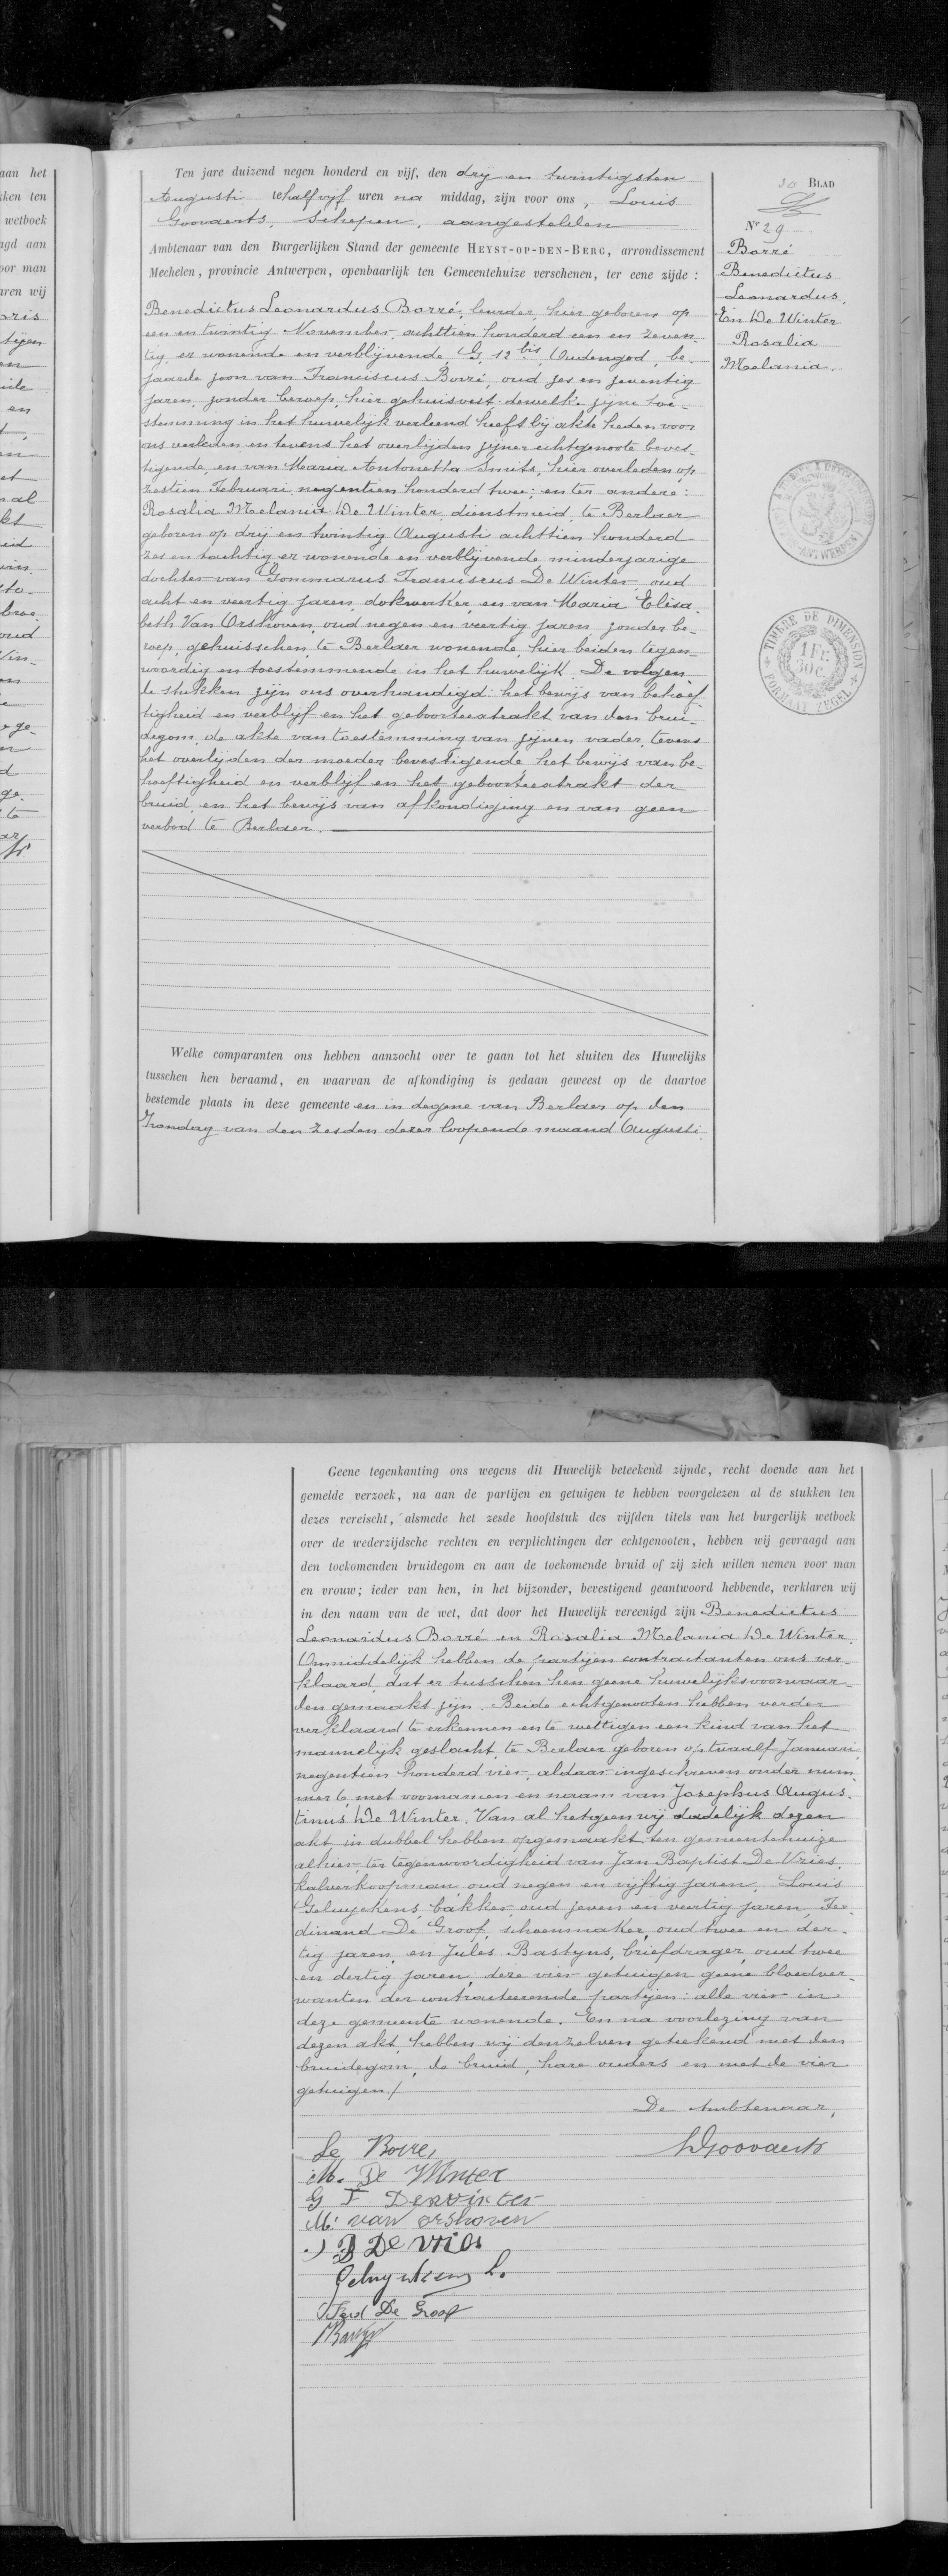 Ten jare duizend negen honderd en vijf, den dry en twintigsten
Augusti te half vijf uren na middag, zijn voor ons, Louis
Goovaerts, Schepen, aangestelden
Ambtenaar van den Burgerlijken Stand der gemeente HEYST-OP-DEN-BERG, arrondissement
Mechelen, provincie Antwerpen, openbaarlijk ten Gemeentehuize verschenen, ter eene zijde :
Benedictus Leonardus Borré, leurder, hier geboren op
een en twintig November achttien honderd een en zeven-
tig, er wonende en verblijvende G, 12 bis, Oudengod, be-
jaarde zoon van Franciscus Borré, oud zes en zeventig
jaren, zonder beroep, hier gehuisvest, dewelke zijne toe-
stemming in het huwelijk verleend heeft bij akte heden voor
ons verleden en tevens het overlijden zijner echtgenoote beves-
tigende, en van Maria Antonetta Smits, hier overleden op
zestien Februari negentien honderd twee; en ter andere:
Rosalia Melania De Winter, dienstmeid, te Berlaer
geboren op dry en twintig Augusti achttien honderd
zes en tachtig er wonende en verblijvende minderjarige
dochter van Gommarus Franciscus De Winter, oud
acht en veertig jaren, dokwerker, en van Maria Elisa-
beth Van Orshoven, oud negen en veertig jaren zonder be-
roep, gehuisschen, te Berlaer wonende, hier beiden tegen-
woordig en toestemmende in het huwelijk. De volgen-
de stukken zijn ons overhandigd: het bewijs van behoef-
tigheid en verblijf en het geboorteextrakt van den brui-
degom, de akte van toestemming van zijnen vader, tevens
het overlijden der moeder bevestigende, het bewijs van be-
hoeftigheid en verblijf en het geboorteextrakt der
bruid, en het bewijs van afkondiging en van geen
verbod te Berlaer.
Welke comparanten ons hebben aanzocht over te gaan tot het sluiten des Huwelijks
tusschen hen beraamd, en waarvan de afkondiging is gedaan geweest op de daartoe
bestemde plaats in deze gemeente en in degene van Berlaer op den
Zondag van den zesden dezer loopende maand Augusti.
30 BLAD
Nr 29
Borré
Benedictus
Leonardus,
En De Winter
Rosalia
Melania.
TIMBRE DE DIMENSION
1 FR.
30 C.
FORMAAT ZEGEL
Geene tegenkanting ons wegens dit Huwelijk beteekend zijnde, recht doende aan het
gemelde verzoek, na aan de partijen en getuigen te hebben voorgelezen al de stukken ten
dezes vereischt, alsmede het zesde hoofdstuk des vijfden titels van het burgerlijk wetboek
over de wederzijdsche rechten en verplichtingen der echtgenooten, hebben wij gevraagd aan
den toekomenden bruidegom en aan de toekomende bruid of zij zich willen nemen voor man
en vrouw; ieder van hen, in het bijzonder, bevestigend geantwoord hebbende, verklaren wij
in den naam van de wet, dat door het Huwelijk vereenigd zijn Benedictus
Leonardus Borré en Rosalia Melania De Winter.
Onmiddelijk hebben de partijen contractanten ons ver-
klaard, dat er tusschen hen geene huwelijksvoorwaar-
den gemaakt zijn. Beide echtgenooten hebben verder
verklaard te erkennen en te wettigen een kind van het
mannelijk geslacht, te Berlaer geboren op twaalf Januari
negentien honderd vier, aldaar ingeschreven onder num-
mer 6, met voornamen en naam van Josephus Augus-
tinus De Winter. Van al hetgeen wij dadelijk dezen
akt in dubbel hebben opgemaakt ten gemeentehuize
alhier, ter tegenwoordigheid van Jan Baptist De Vries,
kalverkoopman, oud negen en vijftig jaren, Louis
Geluyckens, bakker, oud zeven en veertig jaren, Fer-
dinand De Groof, schoenmaker, oud twee en der-
tig jaren, en Jules Bastyns, briefdrager, oud twee
en dertig jaren, deze vier getuigen geene bloedver-
wanten der contracteerende partijen: alle vier in
deze gemeente wonende. En na voorlezing van
dezen akt, hebben wij denzelven geteekend met den
bruidegom, de bruid, hare ouders en met de vier
getuigen./
De Ambtenaar,
LGoovaerts
Le Borre,
M. De Winter
G F Dewinter
M. van orshoven
J B De Vries
Geluyckens L.
Ferd De Groof